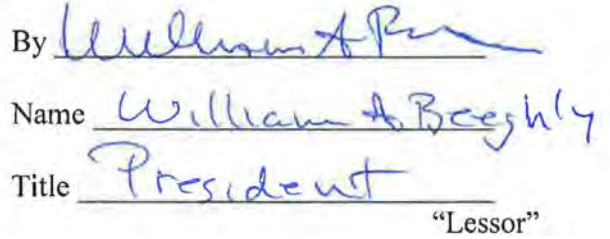 By William A
Name William A. Beeghly
Title President
"Lessor"